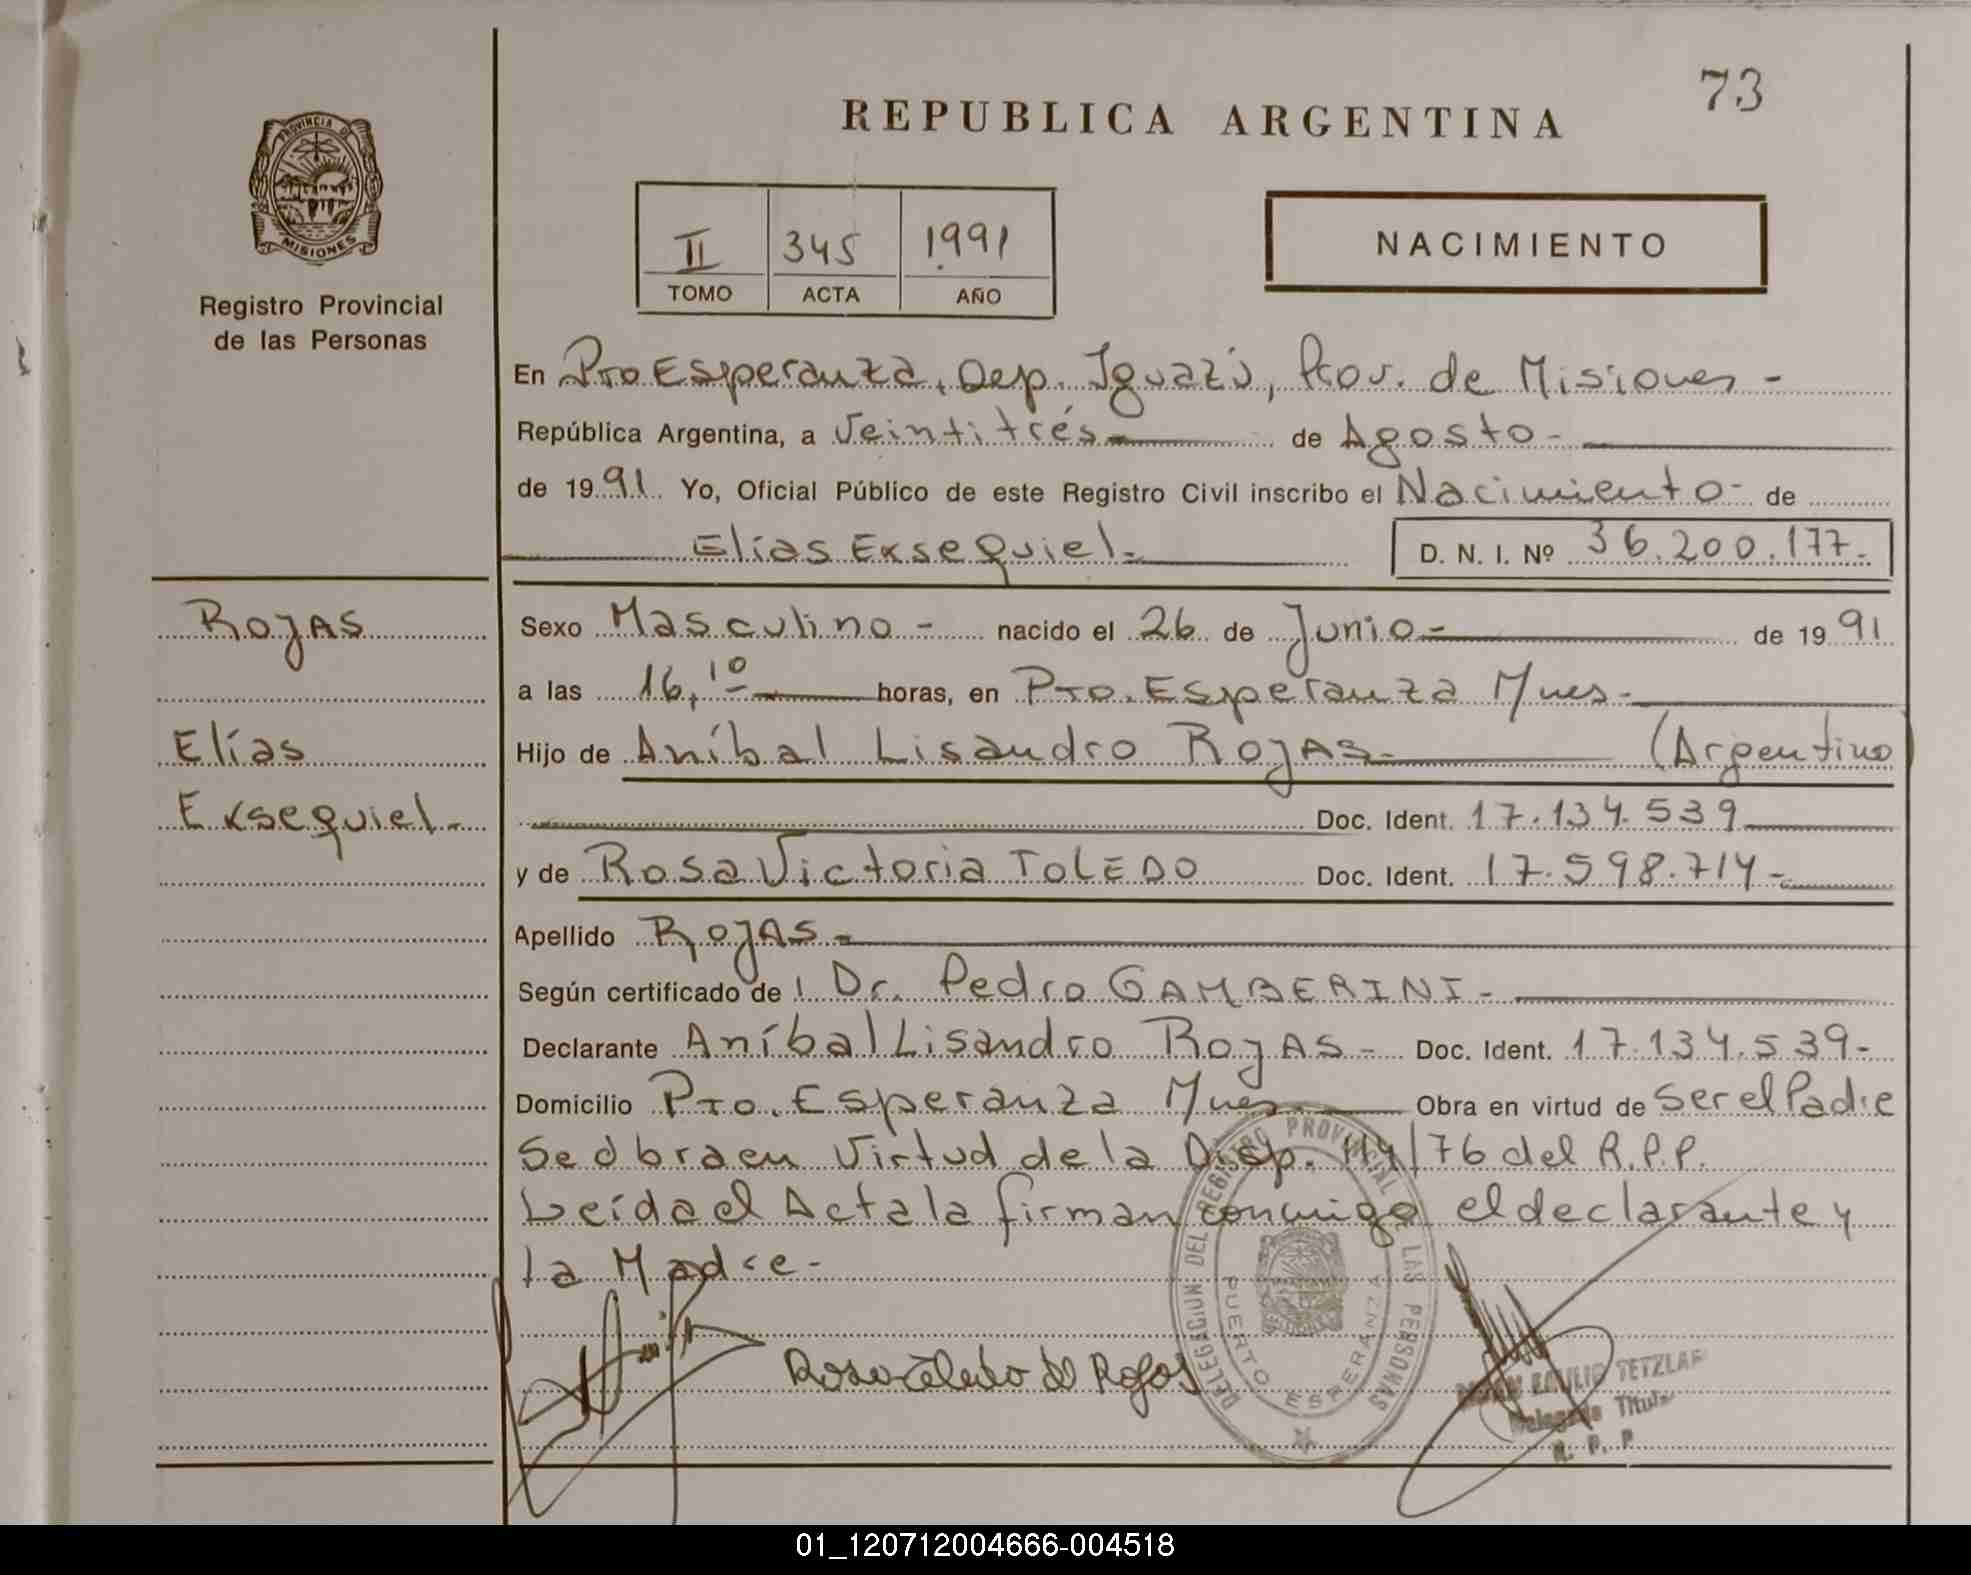 73
REPUBLICA ARGENTINA
PROVINCIA DE
MISIONES
Registro Provincial
de las Personas
II 345 1991
TOMO ACTA AÑO
NACIMIENTO
En Pto Esperanza, Dep. Iguazú, Prov. de Misiones -
República Argentina, a Veintitrés - de Agosto -
de 1991. Yo, Oficial Público de este Registro Civil inscribo el Nacimiento - de
Elías Exsequiel - D. N. I. Nº 36.200.177.-
Rojas
Elías
Exsequiel -
Sexo Masculino - nacido el 26 de Junio - de 1991
a las 16,10 horas, en Pto. Esperanza Mnes -
Hijo de Aníbal Lisandro Rojas - (Argentino)
Doc. Ident. 17.134.539
y de Rosa Victoria TOLEDO Doc. Ident. 17.598.714 -
Apellido ROJAS -
Según certificado de l Dr. Pedro GAMBERINI -
Declarante Aníbal Lisandro ROJAS - Doc. Ident. 17.134.539 -
Domicilio Pto. Esperanza Mnes Obra en virtud de Ser el Padre
Se obra en Virtud de la Disp. /76 del R.P.P.
Leída el Acta la firman conmigo el declarante y
la Madre -
Rosa Toledo de Rojas
DELEGACION DEL REGISTRO PROVINCIAL DE LAS PERSONAS
PUERTO ESPERANZA
EMILIO TETZLAF
Delegado Titular
R. P. P.
01_120712004666-004518